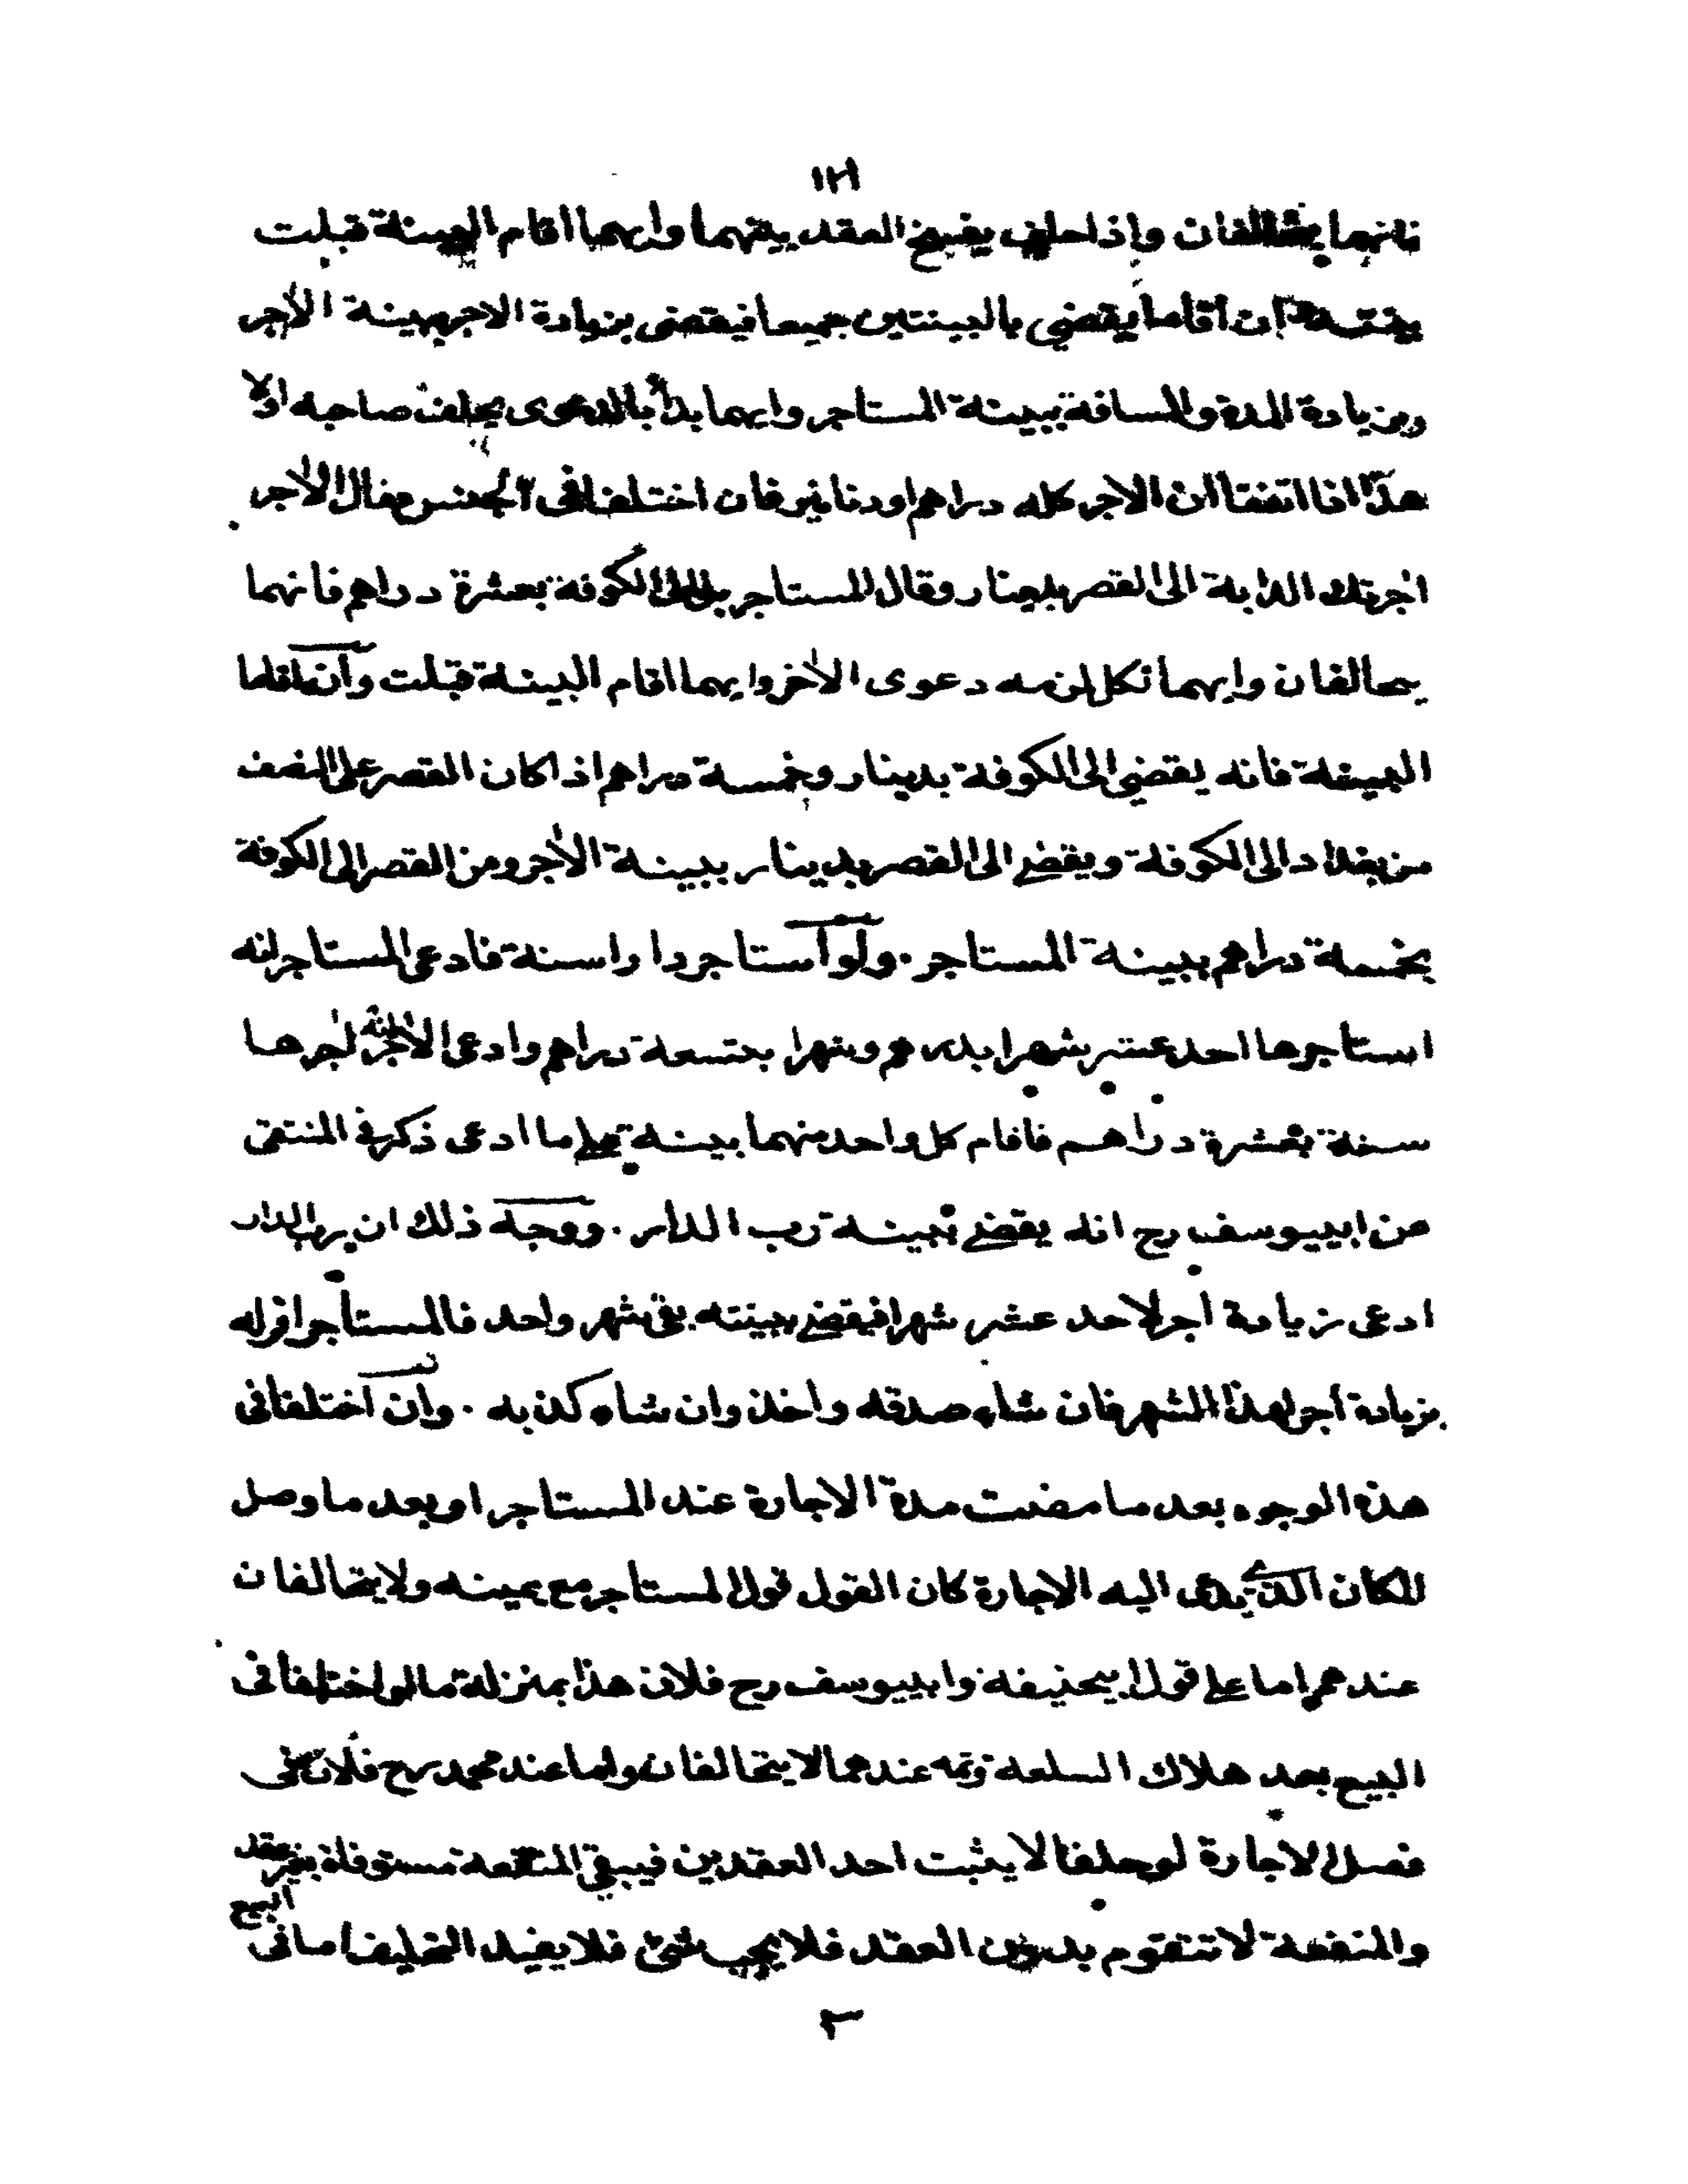 فانهما يتحالفان واذا حلف يفسخ العقد بينهما وايهما اقام البينة قبلت
بينته وان اقاما يقضى بالبينتين جميعا فيقضى بزيادة الاجر ببينة الآجر
وبزيادة المدة والمسافة ببينة المستاجر وايهما بدأ بالدعوى يحلف صاحبه اولا
هذا اذا اتفقا ان الاجر كله دراهم او دنانير فان اختلفا فى الجنس فقال الآجر
اجرتك الدابة الى القصر بدينار وقال المستاجر بل الى الكوفة بعشرة دراهم فانهما
يتحالفان وايهما نكل لزمه دعوى الآخر وايهما اقام البينة قبلت وان اقاما
البينة فانه يقضى الى الكوفة بدينار وخمسة دراهم اذا كان القصر على النصف
من بغداد الى الكوفة ويقضى الى القصر بدينار ببينة الآجر ومن القصر الى الكوفة
بخمسة دراهم ببينة المستاجر . ولو استاجر دارا سنة فادعى المستاجر انه
استاجرها احد عشر شهرا بدرهم وشهرا بتسعة دراهم وادعى الآجر انه اجرها
سنة بعشرة دراهم فاقام كل واحد منهما بينة على ما ادعى ذكر فى المنتقى
عن ابييوسف رح انه يقضى ببينة رب الدار . ووجه ذلك ان رب الدار
ادعى زيادة اجر لاحد عشر شهرا فيقضى ببينته بقى شهر واحد فالمستأجر اقر له
بزيادة اجر لهذا الشهر فان شاء صدقه واخذ وان شاء كذبه . وان اختلفا فى
هذه الوجوه بعد ما مضت مدة الاجارة عند المستاجر او بعد ما وصل
المكان الذى يدعى اليه الاجارة كان القول قول المستاجر مع يمينه ولا يتحالفان
عندهم اما على قول ابيحنيفه وابييوسف رح فلان هذا بمنزلة ما لو اختلفا فى
البيع بعد هلاك السلعة وثمه عندهما لا يتحالفان واما عند محمد رح فلان فى
فصل الاجارة لو حلفا لا يثبت احد العقدين فيبقى المنفعة مستوفاة بغير عقد
والمنفعة لا تتقوم بدون العقد فلا يجب شئ فلا يفيد التحليف اما فى البيع